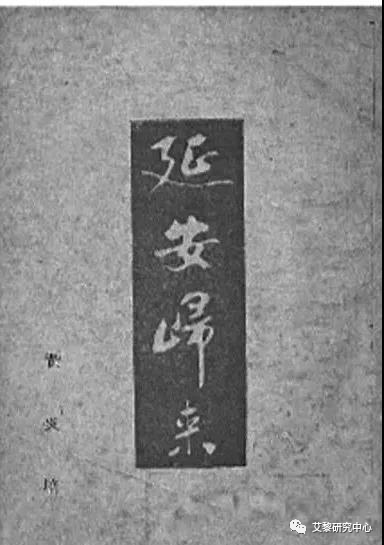 延安歸来
黄炎培
艾黎研究中心